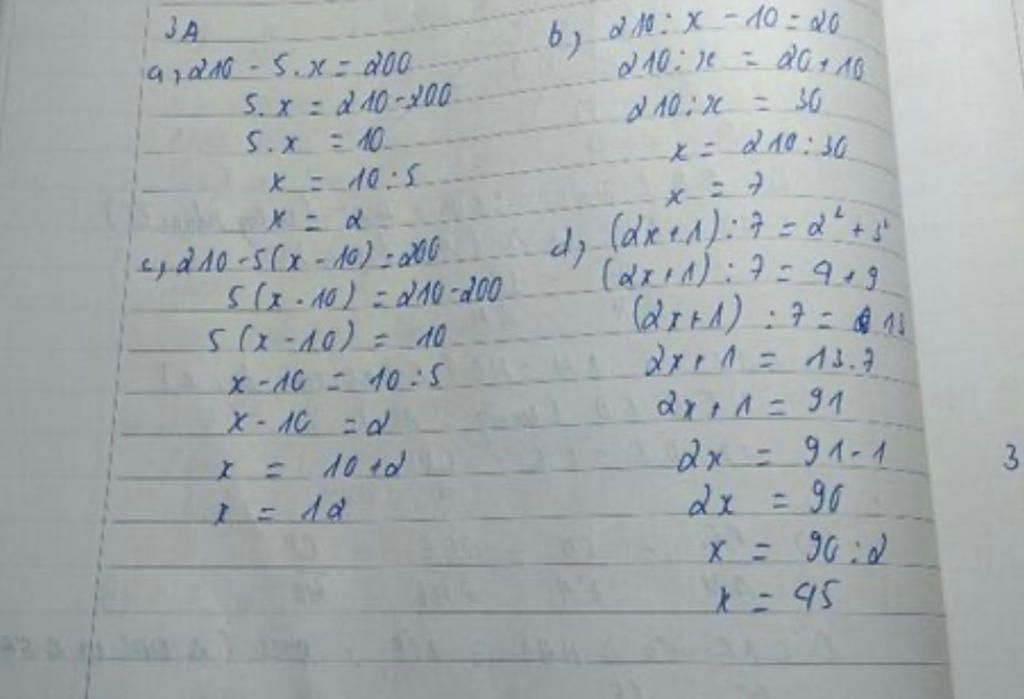 3A
a, 210 - 5.x = 200
5.x = 210-200
5.x = 10
x = 10:5
x = 2
c, 210-5(x-10)=200
5(x-10) = 210-200
5(x-10) = 10
x-10 = 10:5
x-10 = 2
x = 10+2
x = 12
b, 210:x - 10 = 20
210:x = 20+10
210:x = 30
x = 210:30
x = 7
d, (2x+1):7 = 2² + 3²
(2x+1):7 = 4+9
(2x+1):7 = 13
2x+1 = 13.7
2x+1 = 91
2x = 91-1
2x = 90
x = 90:2
x = 45
3